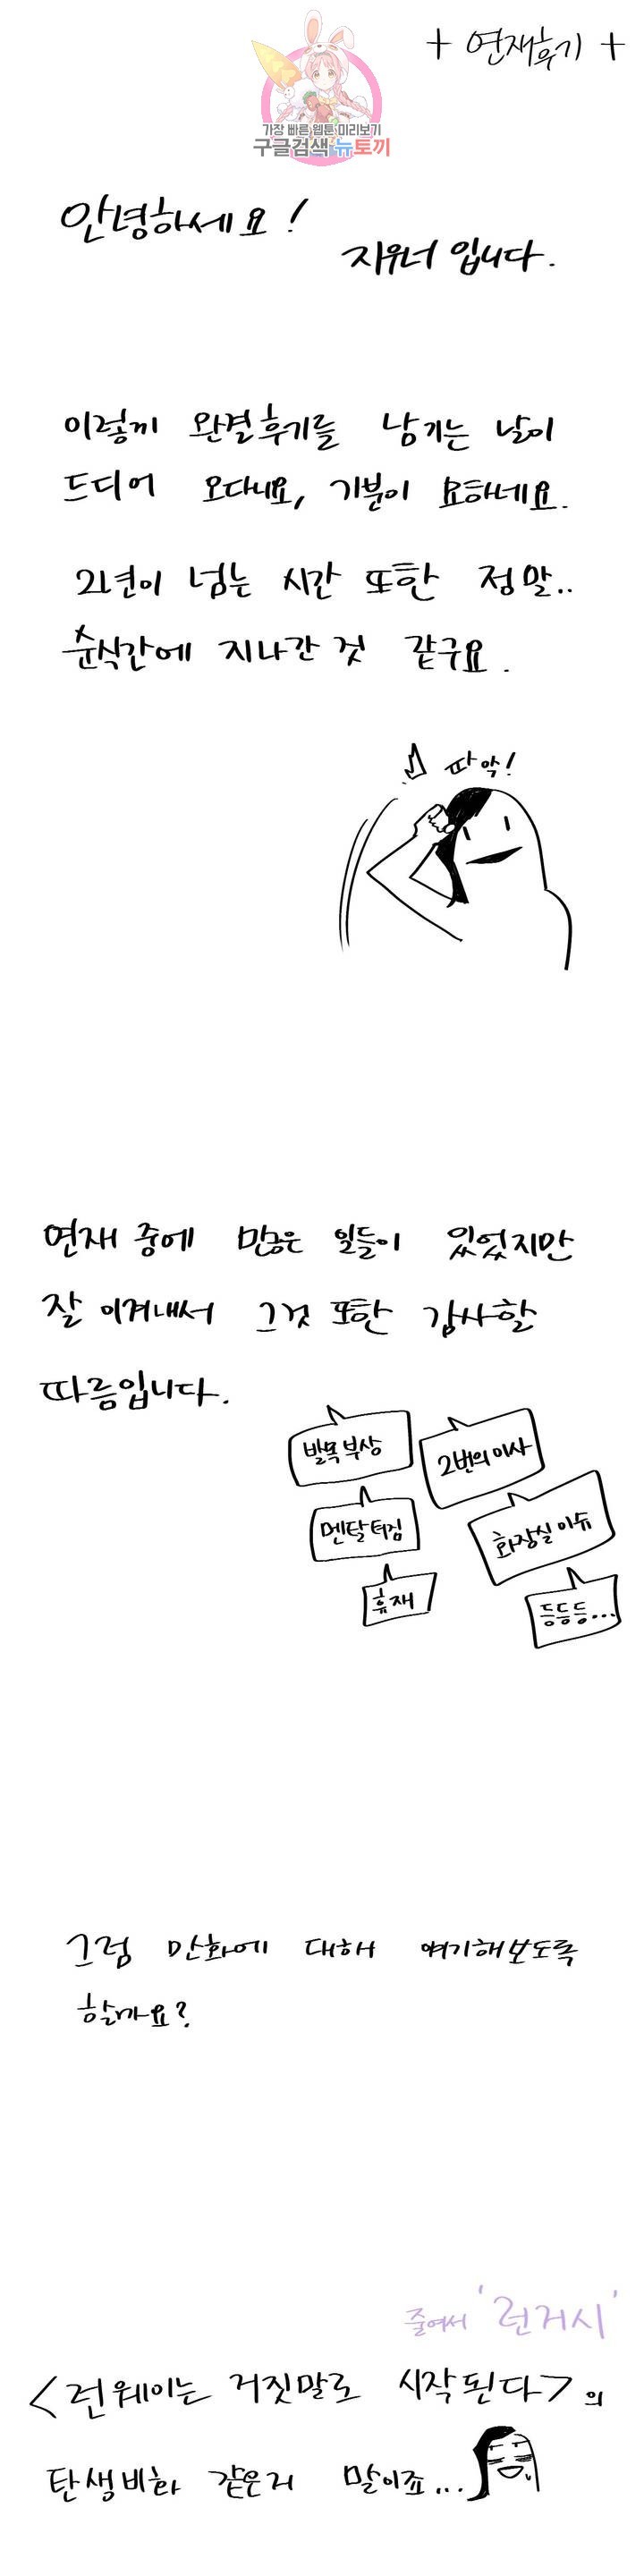 + 연재후기 +
가장 빠른 웹툰 미리보기
구글검색 뉴토끼
안녕하세요!
지우너 입니다.
이렇게 완결후기를 남기는 날이
드디어 오다니요, 기분이 묘하네요.
2년이 넘는 시간 또한 정말..
순식간에 지나간 것 같구요.
따악!
연재 중에 많은 일들이 있었지만
잘 이겨내서 그것 또한 감사할
따름입니다.
발목 부상
2번의 이사
멘탈 터짐
화장실 이슈
휴재
등등등...
그럼 만화에 대해 얘기해보도록
할까요?
줄여서 '런거시'
<런웨이는 거짓말로 시작된다>의
탄생비화 같은거 말이죠...